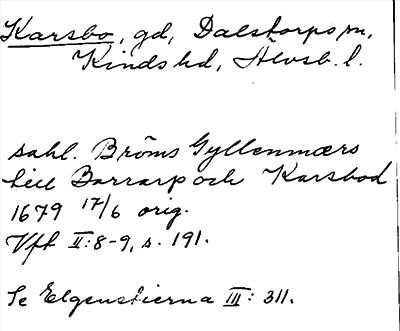 Karsbo, gd, Dalstorps sn,
Kinds hd, Älvsb. l.
sahl. Bröms Gyllenmærs
till Barrarp och Karsbod
1679 17/6 orig.
Vft II:8-9, s. 191.
Se Elgenstierna III: 311.